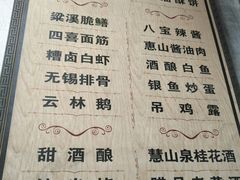 梁溪脆鳝
四喜面筋
糟卤白虾
无锡排骨
云林鹅
甜酒酿
八宝辣酱
惠山酱油肉
酒酿白鱼
银鱼炒蛋
吊鸡露
慧山泉桂花酒